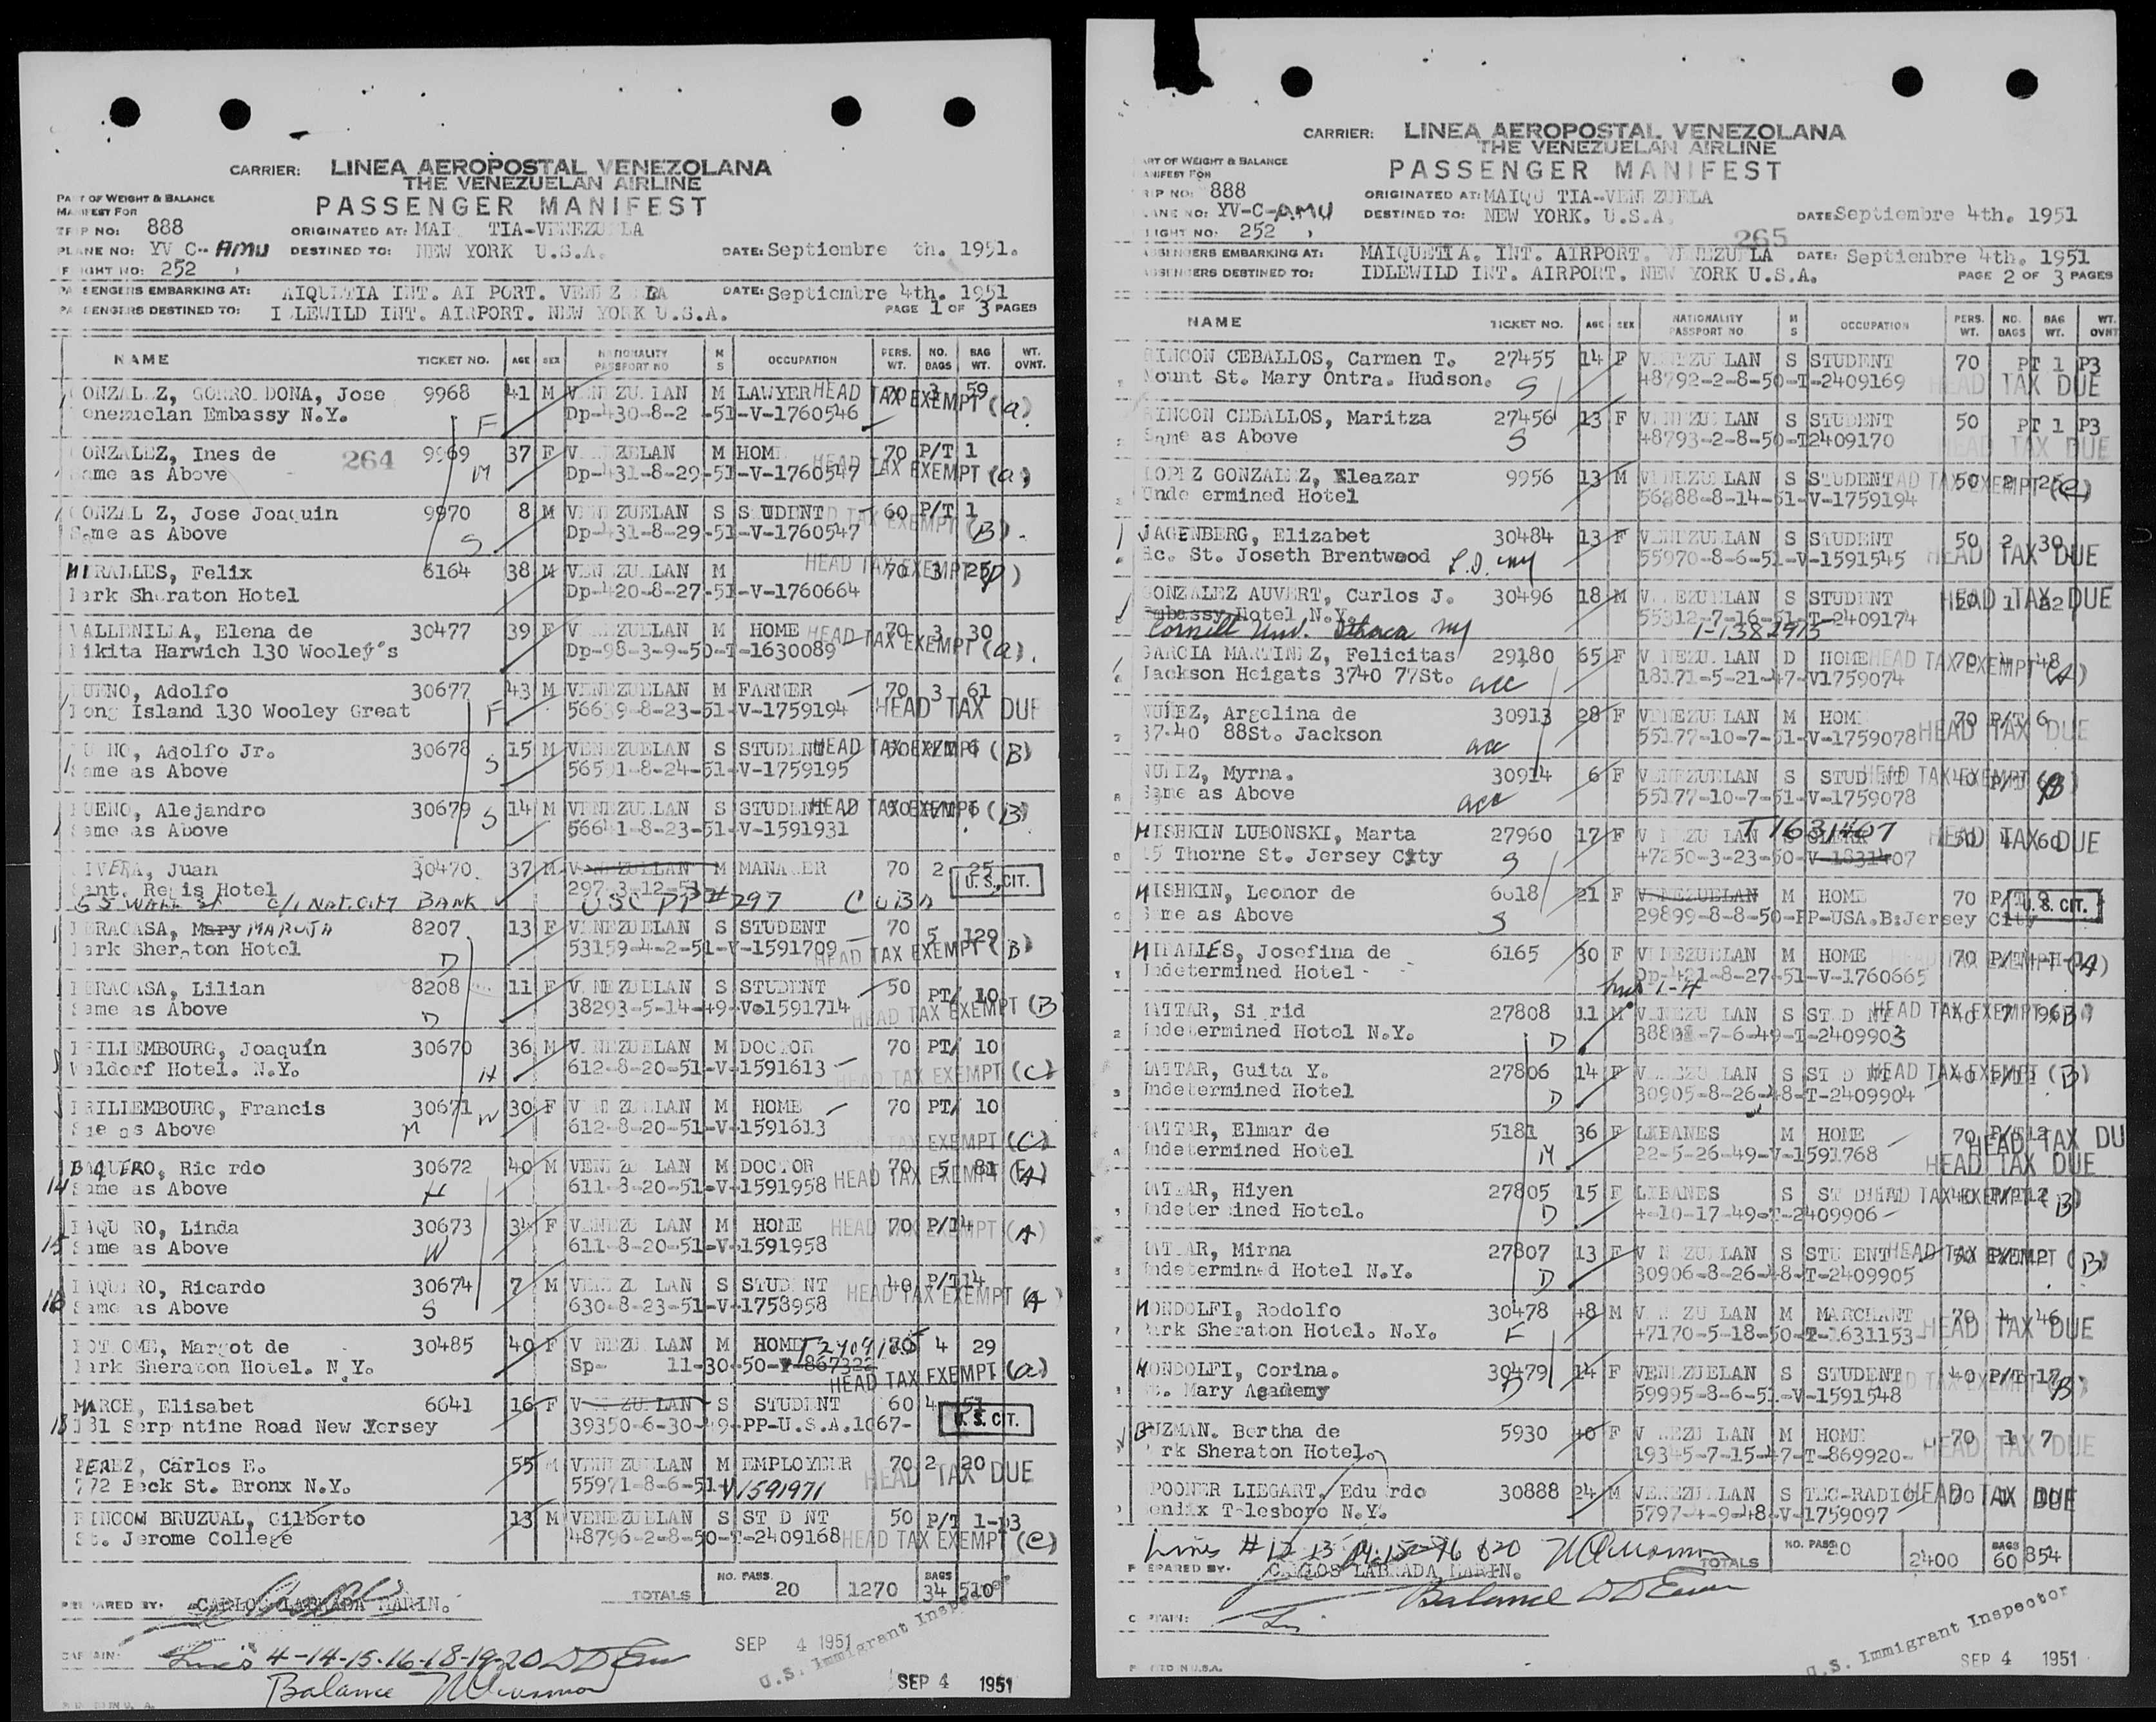 CARRIER: LINEA AEROPOSTAL VENEZOLANA
THE VENEZUELAN AIRLINE
PART OF WEIGHT & BALANCE
MANIFEST FOR
PASSENGER MANIFEST
TRIP NO: 888 ORIGINATED AT: MAI TIA-VENEZU LA
PLANE NO: YV C- AMU DESTINED TO: NEW YORK U.S.A. DATE: Septiembre th. 1951.
FLIGHT NO: 252
PASSENGERS EMBARKING AT: AIQUETIA INT. AI PORT. VENEZ LA DATE: Septiembre 4th. 1951
PASSENGERS DESTINED TO: I LEWILD INT. AIRPORT. NEW YORK U.S.A. PAGE 1 OF 3 PAGES
NAME TICKET NO. AGE SEX NATIONALITY PASSPORT NO M S OCCUPATION PERS. WT. NO. BAGS BAG WT. WT. OVNT.
GONZAL Z, GORRO DONA, Jose 9968 41 M VENEZU LAN M LAWYER HEAD TAX EXEMPT (a) 70 3 59
Venezuelan Embassy N.Y. F Dp-430-8-2 -51-V-1760546
GONZALEZ, Ines de 264 9969 37 F V ZELAN M HOM 70 P/T 1
Same as Above M Dp-431-8-29-51-V-1760547 HEAD TAX EXEMPT (a)
GONZAL Z, Jose Joaquin 9970 8 M VEN ZUELAN S S UDENT 60 P/T 1
Same as Above S Dp-431-8-29-51-V-1760547 TAX EXEMPT (B)
MIRALLES, Felix 6164 38 M VEN ZU LAN M HEAD TAX EXEMPT 70 3 25
Park Sheraton Hotel Dp-420-8-27-51-V-1760664
VALLENILLA, Elena de 30477 39 F V ZUELAN M HOME HEAD TAX EXEMPT (a) 70 3 30
Nikita Harwich 130 Wooley's Dp-98-3-9-50-T-1630089
BUENO, Adolfo 30677 43 M VENEZUELAN M FARMER 70 3 61
Long Island 130 Wooley Great F 56639-8-23-51-V-1759194 HEAD TAX DUE
BUENO, Adolfo Jr. 30678 15 M VENEZUELAN S STUDENT HEAD TAX EXEMPT (B)
Same as Above S 56501-8-24-51-V-1759195
BUENO, Alejandro 30679 14 M VENEZU LAN S STUDENT HEAD TAX EXEMPT (B)
Same as Above S 56641-8-23-51-V-1591931
RIVERA, Juan 30470. 37 M VENEZUELLAN M MANA ER 70 2 25
Sant. Regis Hotel 297-3-12-51 U. S. CIT.
55 WALL ST c/i NAT. CITY BANK USC PP # 297 CUBA
BERACASA, Mary MARUJA 8207 13 F VENEZUELAN S STUDENT 70 5 129
Park Sheraton Hotel D 53159-4-2-51-V-1591709 HEAD TAX EXEMPT (B)
BERACASA, Lilian 8208 11 F V NEZUELAN S STUDENT 50 PT/ 10
Same as Above D 38293-5-14-49-V-1591714 HEAD TAX EXEMPT (B
BRILLEMBOURG, Joaquín 30670 36 M V NEZUELAN M DOCTOR 70 PT/ 10
Waldorf Hotel. N.Y. H 612-8-20-51-V-1591613 HEAD TAX EXEMPT (C)
BRILLEMBOURG, Francis 30671 30 F V N ZU LAN M HOME 70 PT/ 10
Same as Above W 612-8-20-51-V-1591613 EXEMPT (C)
BAQUERO, Ric rdo 30672 40 M VENEZU LAN M DOCTOR 70 5 81
14 Same as Above H 611-8-20-51-V-1591958 HEAD TAX EXEMPT (A)
BAQU RO, Linda 30673 34 F VENEZU LAN M HOME 70 P/T 14
15 Same as Above W 611-8-20-51-V-1591958 HEAD TAX EXEMPT (A)
BAQUERO, Ricardo 30674 7 M VEN ZU LAN S STUD NT 40 P/T 14
16 Same as Above S 630-8-23-51-V-1758958 HEAD TAX EXEMPT (A
BOTOME, Margot de 30485 40 F V NEZU LAN M HOME T2409185 70 4 29
Park Sheraton Hotel. N.Y. Sp- 11-30-50-V-867322 HEAD TAX EXEMPT (a)
MARCH, Elisabet 6641 16 F V ZU LAN S STUDENT 60 4 51
18 131 Serpentine Road New Yersey 39350-6-30-49-PP-U.S.A.1067- U. S. CIT.
PEREZ, Carlos E. 55 M VENEZUELAN M EMPLOYEER 70 2 20
772 Beck St. Bronx N.Y. 55971-8-6-51- V1591971 HEAD TAX DUE
RINCOM BRUZUAL, Gilberto 13 M VENEZUELAN S ST D NT 50 P/T 1-p3
St. Jerome College 48796-2-8-50-T-2409168 HEAD TAX EXEMPT (C)
TOTALS NO. PASS. 20 1270 BAGS 34 510
PREPARED BY: CARLOS LABRADA MARIN.
CAPTAIN: Lines 4-14-15-16-18-19-20
Balance
SEP 4 1951
U.S. Immigrant Inspector
SEP 4 1951
CARRIER: LINEA AEROPOSTAL VENEZOLANA
THE VENEZUELAN AIRLINE
PART OF WEIGHT & BALANCE
MANIFEST FOR
PASSENGER MANIFEST
TRIP NO: 888 ORIGINATED AT: MAIQU TIA-VENEZUELA
PLANE NO: YV-C-AMU DESTINED TO: NEW YORK. U.S.A. DATE: Septiembre 4th. 1951
FLIGHT NO: 252 265
PASSENGERS EMBARKING AT: MAIQUETIA. INT. AIRPORT. VENEZUELA DATE: Septiembre 4th. 1951
PASSENGERS DESTINED TO: IDLEWILD INT. AIRPORT. NEW YORK U.S.A. PAGE 2 OF 3 PAGES
NAME TICKET NO. AGE SEX NATIONALITY PASSPORT NO M S OCCUPATION PERS. WT. NO. BAGS BAG WT. WT. OVNT
RINCON CEBALLOS, Carmen T. 27455 14 F VENEZU LAN S STUDENT 70 PT 1 P3
Mount St. Mary Ontra. Hudson. S 48792-2-8-50-T-2409169 HEAD TAX DUE
RINCON CEBALLOS, Maritza 27456 13 F VENEZU LAN S STUDENT 50 PT 1 P3
Same as Above S 48793-2-8-50-T2409170 HEAD TAX DUE
LOPEZ GONZALEZ, Eleazar 9956 13 M VENEZU LAN S STUDENT HEAD TAX EXEMPT (C) 50 2 25
Unde ermined Hotel 56288-8-14-51-V-1759194
JAGENBERG, Elizabet 30484 13 F VENEZUELAN S STUDENT 50 2 30
Sc. St. Joseth Brentwood L.I. NY 55970-8-6-51-V-1591545 HEAD TAX DUE
GONZALEZ AUVERT, Carlos J. 30496 18 M V EZUELAN S STUDENT HEAD TAX DUE
Embassy Hotel N.Y. 55312-7-16-51-T-2409174
Cornell Univ. Ithaca NY 1-1382915
GARCIA MARTINEZ, Felicitas 29180 65 F V NEZU LAN D HOME HEAD TAX EXEMPT (A) 70 4 48
Jackson Heigats 3740 77St. acc 18171-5-21-47-V1759074
NUÑEZ, Argelina de 30913 28 F VENEZU LAN M HOM 70 P/T 6
37-40 88St. Jackson acc 55177-10-7-51-V-1759078 HEAD TAX DUE
NUÑEZ, Myrna. 30914 6 F VENEZUELAN S STUD NT HEAD TAX EXEMPT (B) 40 P/T
Same as Above acc 55177-10-7-51-V-1759078
MISHKIN LUBONSKI, Marta 27960 17 F V N ZU LAN S T1631407 HEAD TAX DUE
45 Thorne St. Jersey City S 47250-3-23-50-V-1831407
MISHKIN, Leonor de 6618 21 F VENEZUELAN M HOME 70 P/T 9 U. S. CIT.
Same as Above S 29899-8-8-50-PP-USA.B:Jersey City
MIRALLES, Josefina de 6165 30 F VENEZUELAN M HOME 70 P/T TAX EXEMPT (A)
Indetermined Hotel Dp-421-8-27-51-V-1760665
MATTAR, Si rid 27808 11 M VENEZU LAN S ST D NT HEAD TAX EXEMPT (B)
Indetermined Hotel N.Y. D 38898-7-6-49-T-2409903
MATTAR, Guita Y. 27806 14 F V NEZU LAN S ST D NT HEAD TAX EXEMPT (B)
Indetermined Hotel D 30905-8-26-48-T-2409904
MATTAR, Elmar de 5181 36 F LIBANES M HOME 70 P/T 12 HEAD TAX DU
Indetermined Hotel M 22-5-26-49-V-1591768 HEAD TAX DUE
MATTAR, Hiyen 27805 15 F LIBANES S ST D HEAD TAX EXEMPT 40 P/T 12
Indetermined Hotel. D 4-10-17-49-T-2409906 (B)
MATTAR, Mirna 27807 13 F V N ZUELAN S STU ENT HEAD TAX EXEMPT (B)
Indetermined Hotel N.Y. D 30906-8-26-48-T-2409905
MONDOLFI, Rodolfo 30478 48 M V N ZU LAN M MARCHANT 70 4 46
Park Sheraton Hotel. N.Y. F 47170-5-18-50-T-1631153- HEAD TAX DUE
MONDOLFI, Corina. 30479 14 F VENEZUELAN S STUDENT 40 P/T-17
St. Mary Academy D 59995-8-6-51-V-1591548 HEAD TAX EXEMPT B
GUZMAN. Bertha de 5930 40 F V NEZU LAN M HOME 70 1 7
Park Sheraton Hotel. 19345-7-15-47-T-869920- HEAD TAX DUE
SPOONER LIEGART, Edu rdo 30888 24 M VENEZUELAN S TEC-RADIO HEAD TAX DUE
Bendix Telesboro N.Y. 5797-4-9-48-V-1759097
Lines #12 13 14-15-16 &20
TOTALS NO. PASS. 20 2400 BAGS 60 854
PREPARED BY: CARLOS LABRADA MARIN.
Balance
CAPTAIN:
U.S. Immigrant Inspector
SEP 4 1951
PRINTED IN U.S.A.